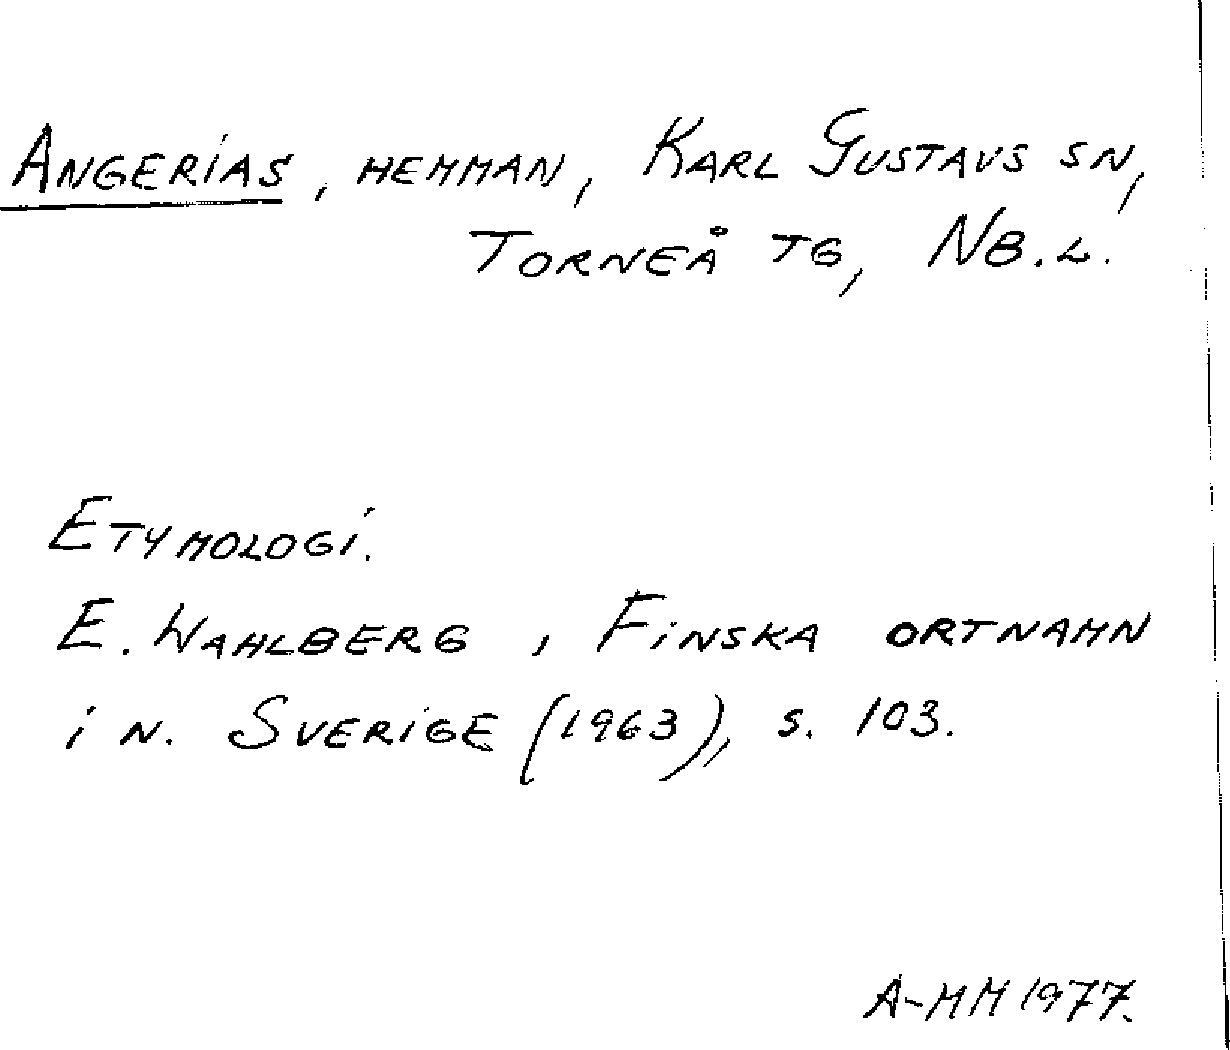 ANGERIAS, HEMMAN, KARL GUSTAVS SN,
TORNEÅ TG, NB.L.
ETYMOLOGI.
E. WAHLBERG, FINSKA ORTNAMN
I N. SVERIGE (1963), S. 103.
A-MM 1977.